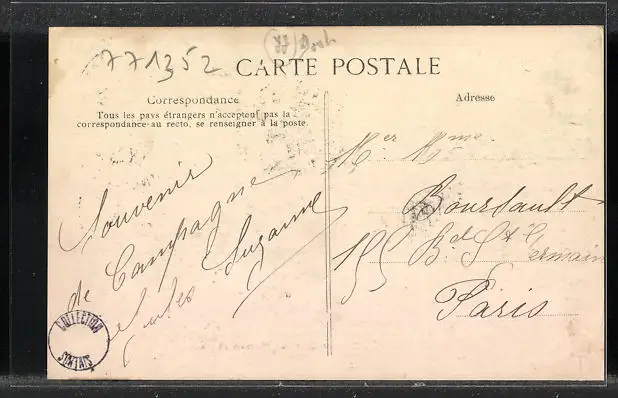 771352
CARTE POSTALE
Correspondance
Tous les pays étrangers n'acceptent pas la
correspondance au recto, se renseigner à la poste.
Adresse
Souvenir
de Campagne
Suzanne
COLLECTION
Mr et Mme
Boursault
155 Bd St Germain
Paris